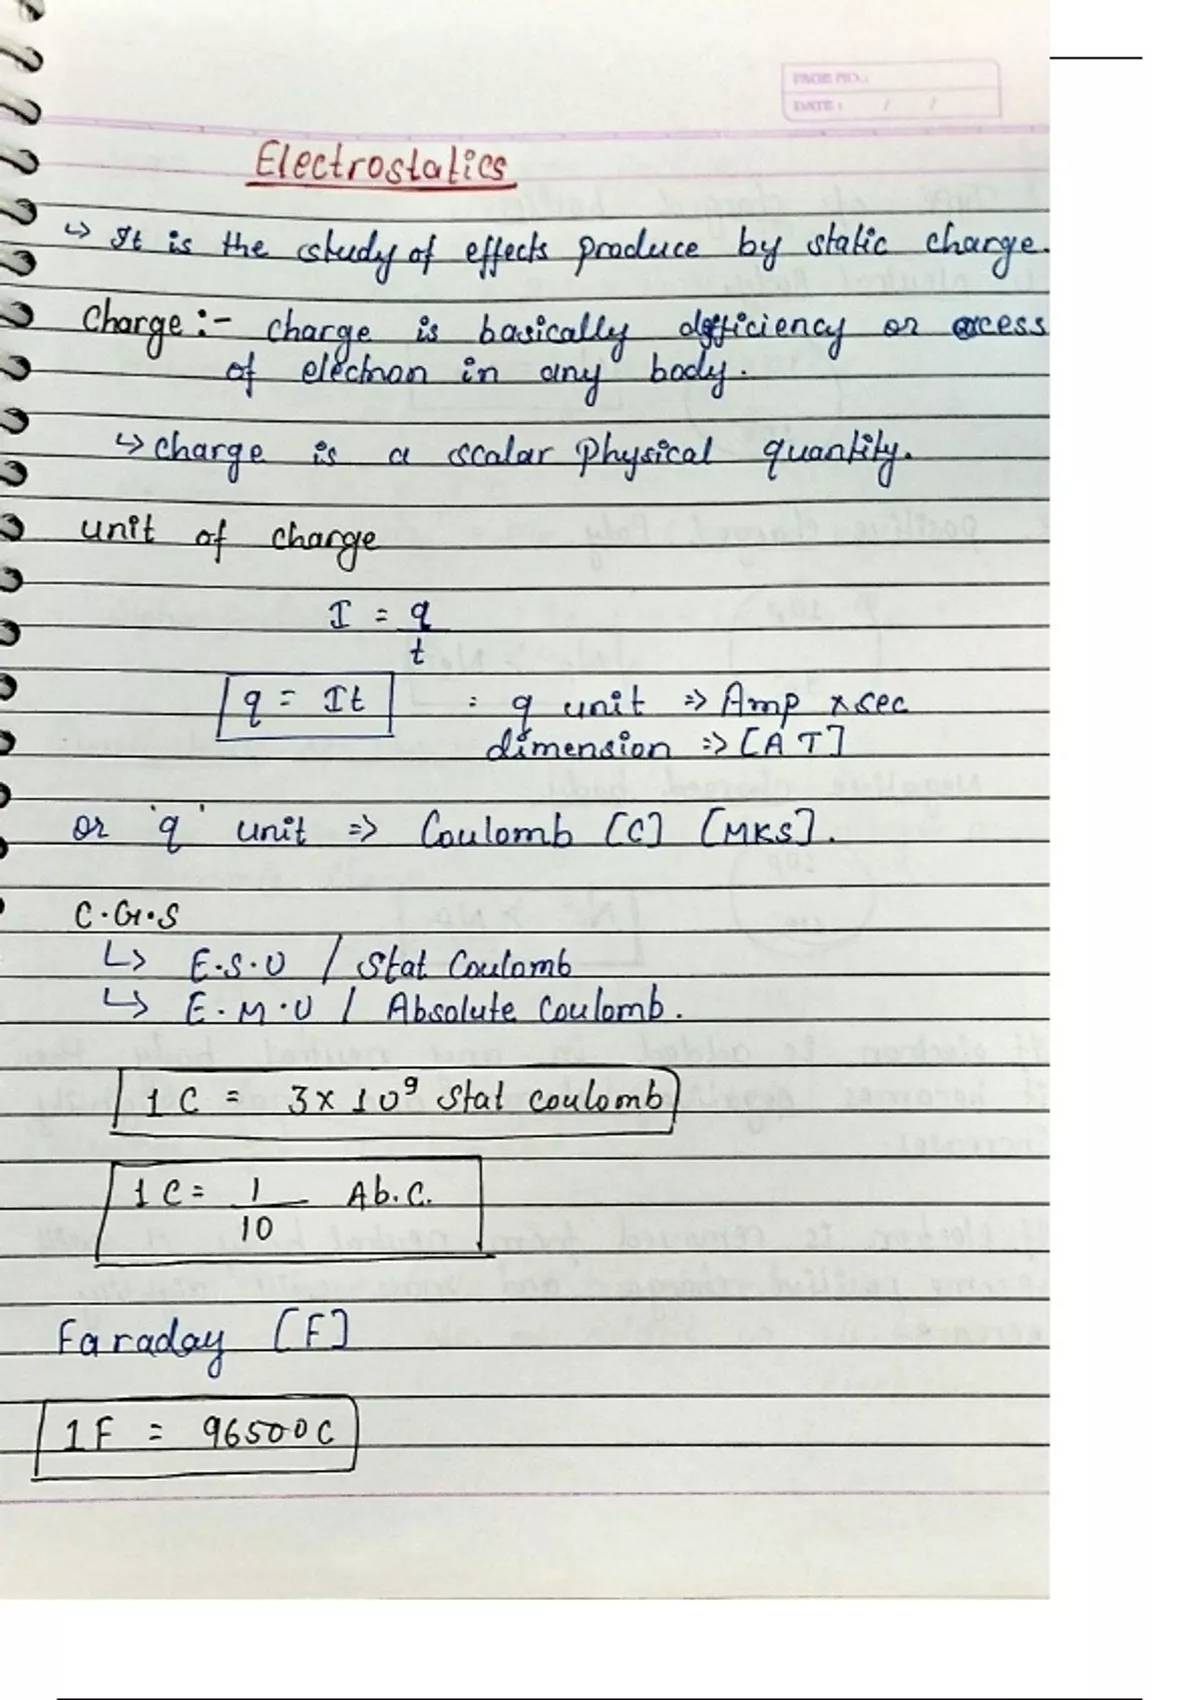 PAGE NO.:
DATE: / /
Electrostatics
↳ It is the study of effects produce by static charge.
Charge :- charge is basically defficiency or excess
of electron in any body.
↳ charge is a scalar physical quantity.
unit of charge
I = q
t
q = It = q unit ⇒ Amp × sec
dimension ⇒ [A T]
or 'q' unit ⇒ Coulomb [C] [MKS].
C.G.S
↳ E.S.U / Stat Coulomb
↳ E.M.U / Absolute Coulomb.
1 C = 3 × 10⁹ Stat coulomb
1 C = 1 Ab.C.
10
Faraday [F]
1 F = 96500C